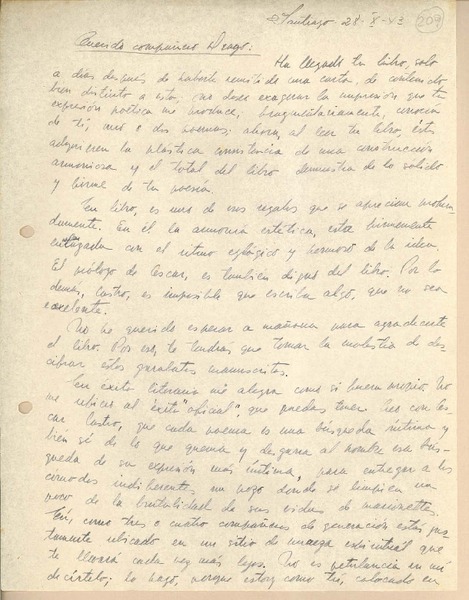 Santiago 28-X-43 209
Querido compañero Drago:
Ha llegado tu libro, solo
a días después de haberte remitido una carta de contenido
bien distinto a esta; no deseo exagerar la impresión que tu
expresión poética me produce; fragmentariamente, conocía
de ti, uno o dos poemas; ahora, al leer tu libro, éstos
adquieren la plástica consistencia de una construcción
armoniosa y el total del libro demuestra de lo sólido
y firme de tu poesía.
Tu libro, es uno de esos regalos que se aprecian profun-
damente. En él la armonía estética, está firmemente
enlazada con el ritmo eglógico y hermoso de la idea.
El prólogo de Oscar, es también digno del libro. Por lo
demás, Castro, es imposible que escriba algo, que no sea
excelente.
No he querido esperar a mañana para agradecerte
el libro. Por eso, te tendrás que tomar la molestia de des-
cifrar éstos garabatos manuscritos.
Tu éxito literario me alegra como si fuera propio. No
me refiero al éxito "oficial" que puedas tener. Leo con Os-
car Castro, que cada poema es una búsqueda íntima y
bien sé de lo que quema y desgarra al hombre esa bús-
queda de su expresión más íntima, para entregar a los
cómodos indiferentes un pozo donde se limpien un
poco de la brutalidad de sus vidas de marionettes.
Tú, como tres o cuatro compañeros de generación estás jus-
tamente ubicado en un sitio de pureza espiritual que
te llevará cada vez más lejos. No es petulancia en mi
decírtelo; lo hago, porque estoy como tú, colocado en